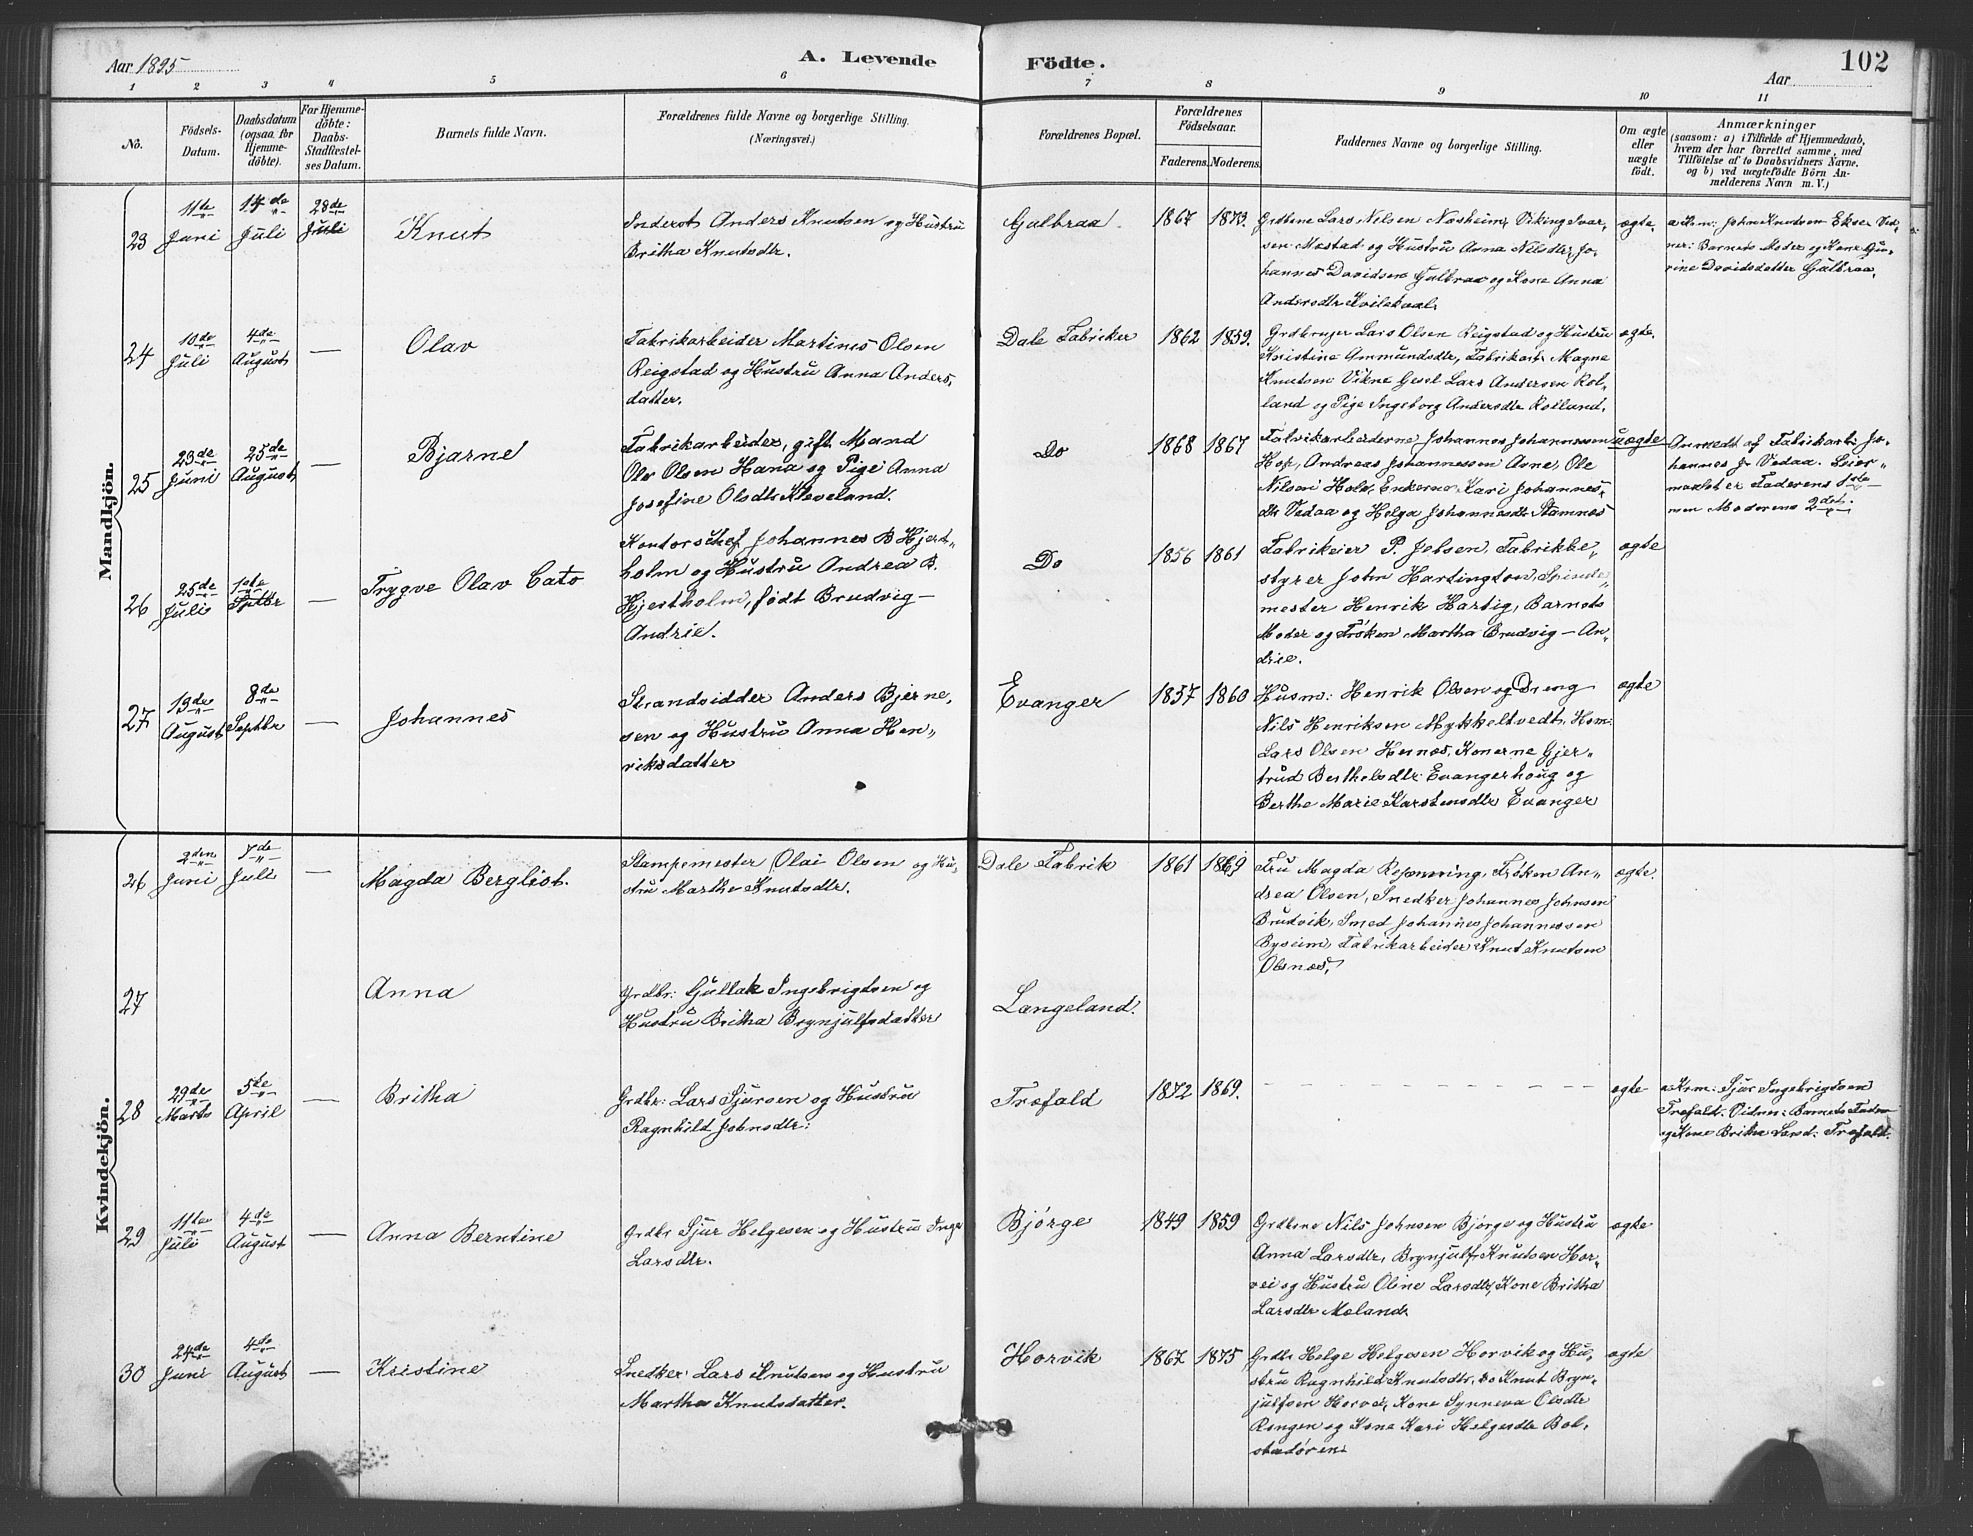 Aar 1895
A. Levende
Födte.
Aar
102
1 2 3 4 5 6 7 8 9 10 11
No.
Födsels-
Datum.
Daabsdatum
(ogsaa for
Hjemme-
döbte).
For Hjemme-
döbte:
Daabs-
Stadfæstel-
ses Datum.
Barnets fulde Navn.
Forældrenes fulde Navne og borgerlige Stilling.
(Næringsvei.)
Forældrenes Bopæl.
Forældrenes
Födselsaar.
Faderens. Moderens.
Faddernes Navne og borgerlige Stilling.
Om ægte
eller
uægte
födt.
Anmærkninger
(saasom: a) i Tilfælde af Hjemmedaab,
hvem der har forrettet samme, med
Tilföielse af to Daabsvidners Navne,
og b) ved uægtefödte Börn An-
melderens Navn m. V.)
Mandkjön.
23
11te
Juni
14de
Juli
28de
Juli
Knut
Inderst Anders Knutsen og Hustru
Britha Knutsdtr.
Gulbraa
1867 1873.
Grdbrne Lars Nilsen Næsheim, Viking Ivar-
sen Mæstad og Hustru Anna Nilsdtr, Jo-
hannes Davidsen Gulbraa og Kone Anna
Andersdtr Kvilekval
ægte.
a. Krm: John Knudsen Ekse Vid-
ner: Barnets Moder og Kone Gu-
rine Davidsdatter Gulbraa.
24
10de
Juli
4de
August
—
Olav
Fabrikarbeider Martines Olsen
Reigstad og Hustru Anna Anders-
datter.
Dale Fabriker
1862 1859.
Grdbruger Lars Olsen Reigstad og Hustru
Kristine Ammundsdtr, Fabrikarb. Magne
Knutsen Vikne Gesel Lars Andersen Rol-
land og Pige Ingeborg Andersdtr Rolland.
ægte.
25
23de
Juni
25de
August
—
Bjarne
Fabrikarbeider, gift Mand
Olv Olsen Hana og Pige Anna
Josefine Olsdtr Kleveland.
Do
1868 1867
Fabrikarbeiderne Johannes Johannessen
Hop, Andreas Johannessen Avne, Ole
Nilsen Holv, Enkerne Kari Johannes-
dtr Vedaa og Helga Johannesdtr Stamnes
uægte
Anmedt af Fabrikarb: Jo-
hannes J. Vedaa. Leier-
maalet er Faderens 1ste
men Moderens 2det.
26
25de
Juli
1ste
Septbr
—
Trygve Olav Cato
Kontorschef Johannes B Hjert-
holm og Hustru Andrea B.
Hjertholm, født Brudvig-
Andrie.
Do
1856 1861
Fabrikeier P. Jebsen, Fabrikbe-
styrer John Hartington, Spinde-
mester Henrik Hartig, Barnets
Moder og Frøken Martha Brudvig - An-
drie.
ægte
27
13de
August
8de
Septbr
—
Johannes
Strandsidder Anders Bjerne-
sen og Hustru Anna Hen-
riksdatter
Evanger
1857 1860
Husm: Henrik Olsen og Dreng
Nils Henriksen Mykkeltvedt, Hsm:
Lars Olsen Hernæs, Konerne Gjer-
trud Berthelsdtr Evangerhoug og
Berthe Marie Karstensdtr Evanger
ægte
Kvindekjön.
26
2den
Juni
7de
Juli
—
Magda Bergliot.
Stampemester Olai Olsen og Hu-
stru Marthe Knutsdtr.
Dale Fabrik
1861 1869
Fru Magda Rønnring, Frøken An-
drea Olsen, Snedker Johannes Johnsen
Brudvik, Smed Johannes Johannessen
Byseim, Fabrikarbeider Knut Knutsen
Olsnæs.
ægte.
27
Anna
Grdbr: Gullak Ingebrigtsen og
Hustru Britha Brynjulfsdatter
Langeland.
28
29de
Marts
5te
April
—
Britha
Grdbr: Lars Sjursen og Hustru
Ragnhild Johnsdtr:
Træfald
1872 1869.
ægte
a Krm: Sjur Ingebrigtsen
Træfald. Vidner: Barnets Fader
og Kone Britha Larsd: Træfald.
29
11te
Juli
4de
August
—
Anna Berntine
Grdbr Sjur Helgesen og Hustru Inga
Larsdtr.
Bjørge
1849 1859
Grdbrne Nils Johnsen Bjørge og Hustru
Anna Larsdtr, Brynjulf Knutsen Hor-
vei og Hustru Oline Larsdtr, Kone Britha
Larsdtr Mæland
ægte
30
24de
Juni
4de
August
—
Kristine
Snedker Lars Knutsen og Hustru
Martha Knutsdatter.
Horvik
1867 1875
Grdbr Helge Helgesen Horvik og Hu-
stru Ragnhild Knutsdtr, Do Knut Bryn-
julfsen Horvei, Kone Synneva Olsdtr
Rongen og Kone Kari Helgesdtr Bol-
stadøren
ægte